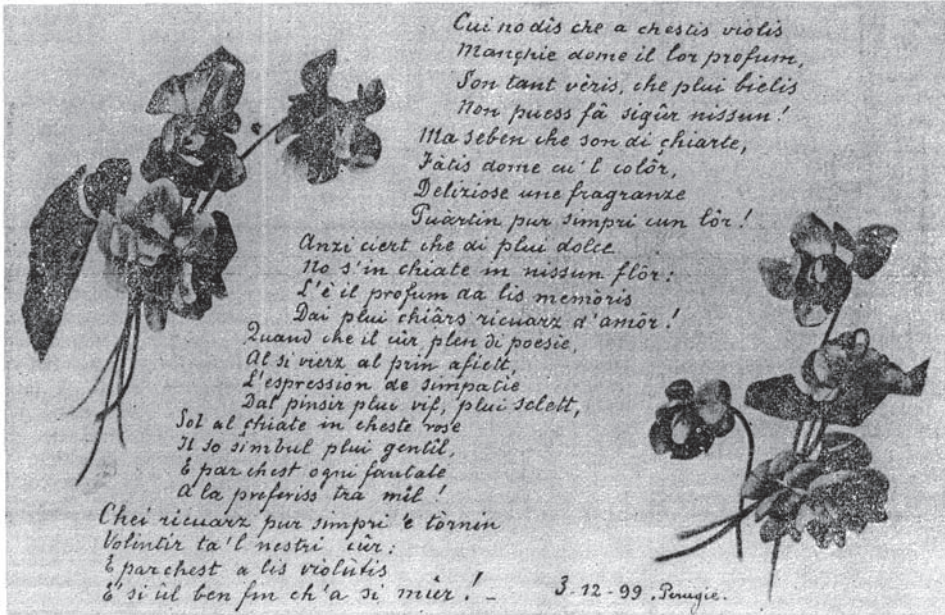 Cui no dis che a chestis violis
Manghie dome il lor profum,
Son tant vèris, che plui bielis
Non puess fâ sigûr nissun!
Ma seben che son di chiarte,
Fâtis dome cu'l colôr,
Deliziose une fragranze
Puàrtin pur simpri cun lôr!
Anzi ciert che di plui dolce
No s'in chiate in nissun flôr:
L'è il profum da lis memòris
Dai plui chiârs ricuarz d'amôr!
Quand che il cûr plen di poesie,
Al si vierz al prin afiett,
L'espression de simpatie
Dal pinsir plui vif, plui selett,
Sol al chiate in cheste rose
Il so simbul plui gentîl,
E par chest ogni fantate
A la preferiss tra mil!
Chei ricuarz pur simpri 'e tòrnin
Volintîr ta'l nestri cûr:
E par chest a lis violùtis
E' si ûl ben fin ch'a si mûr! -
3-12-99. Perugie.